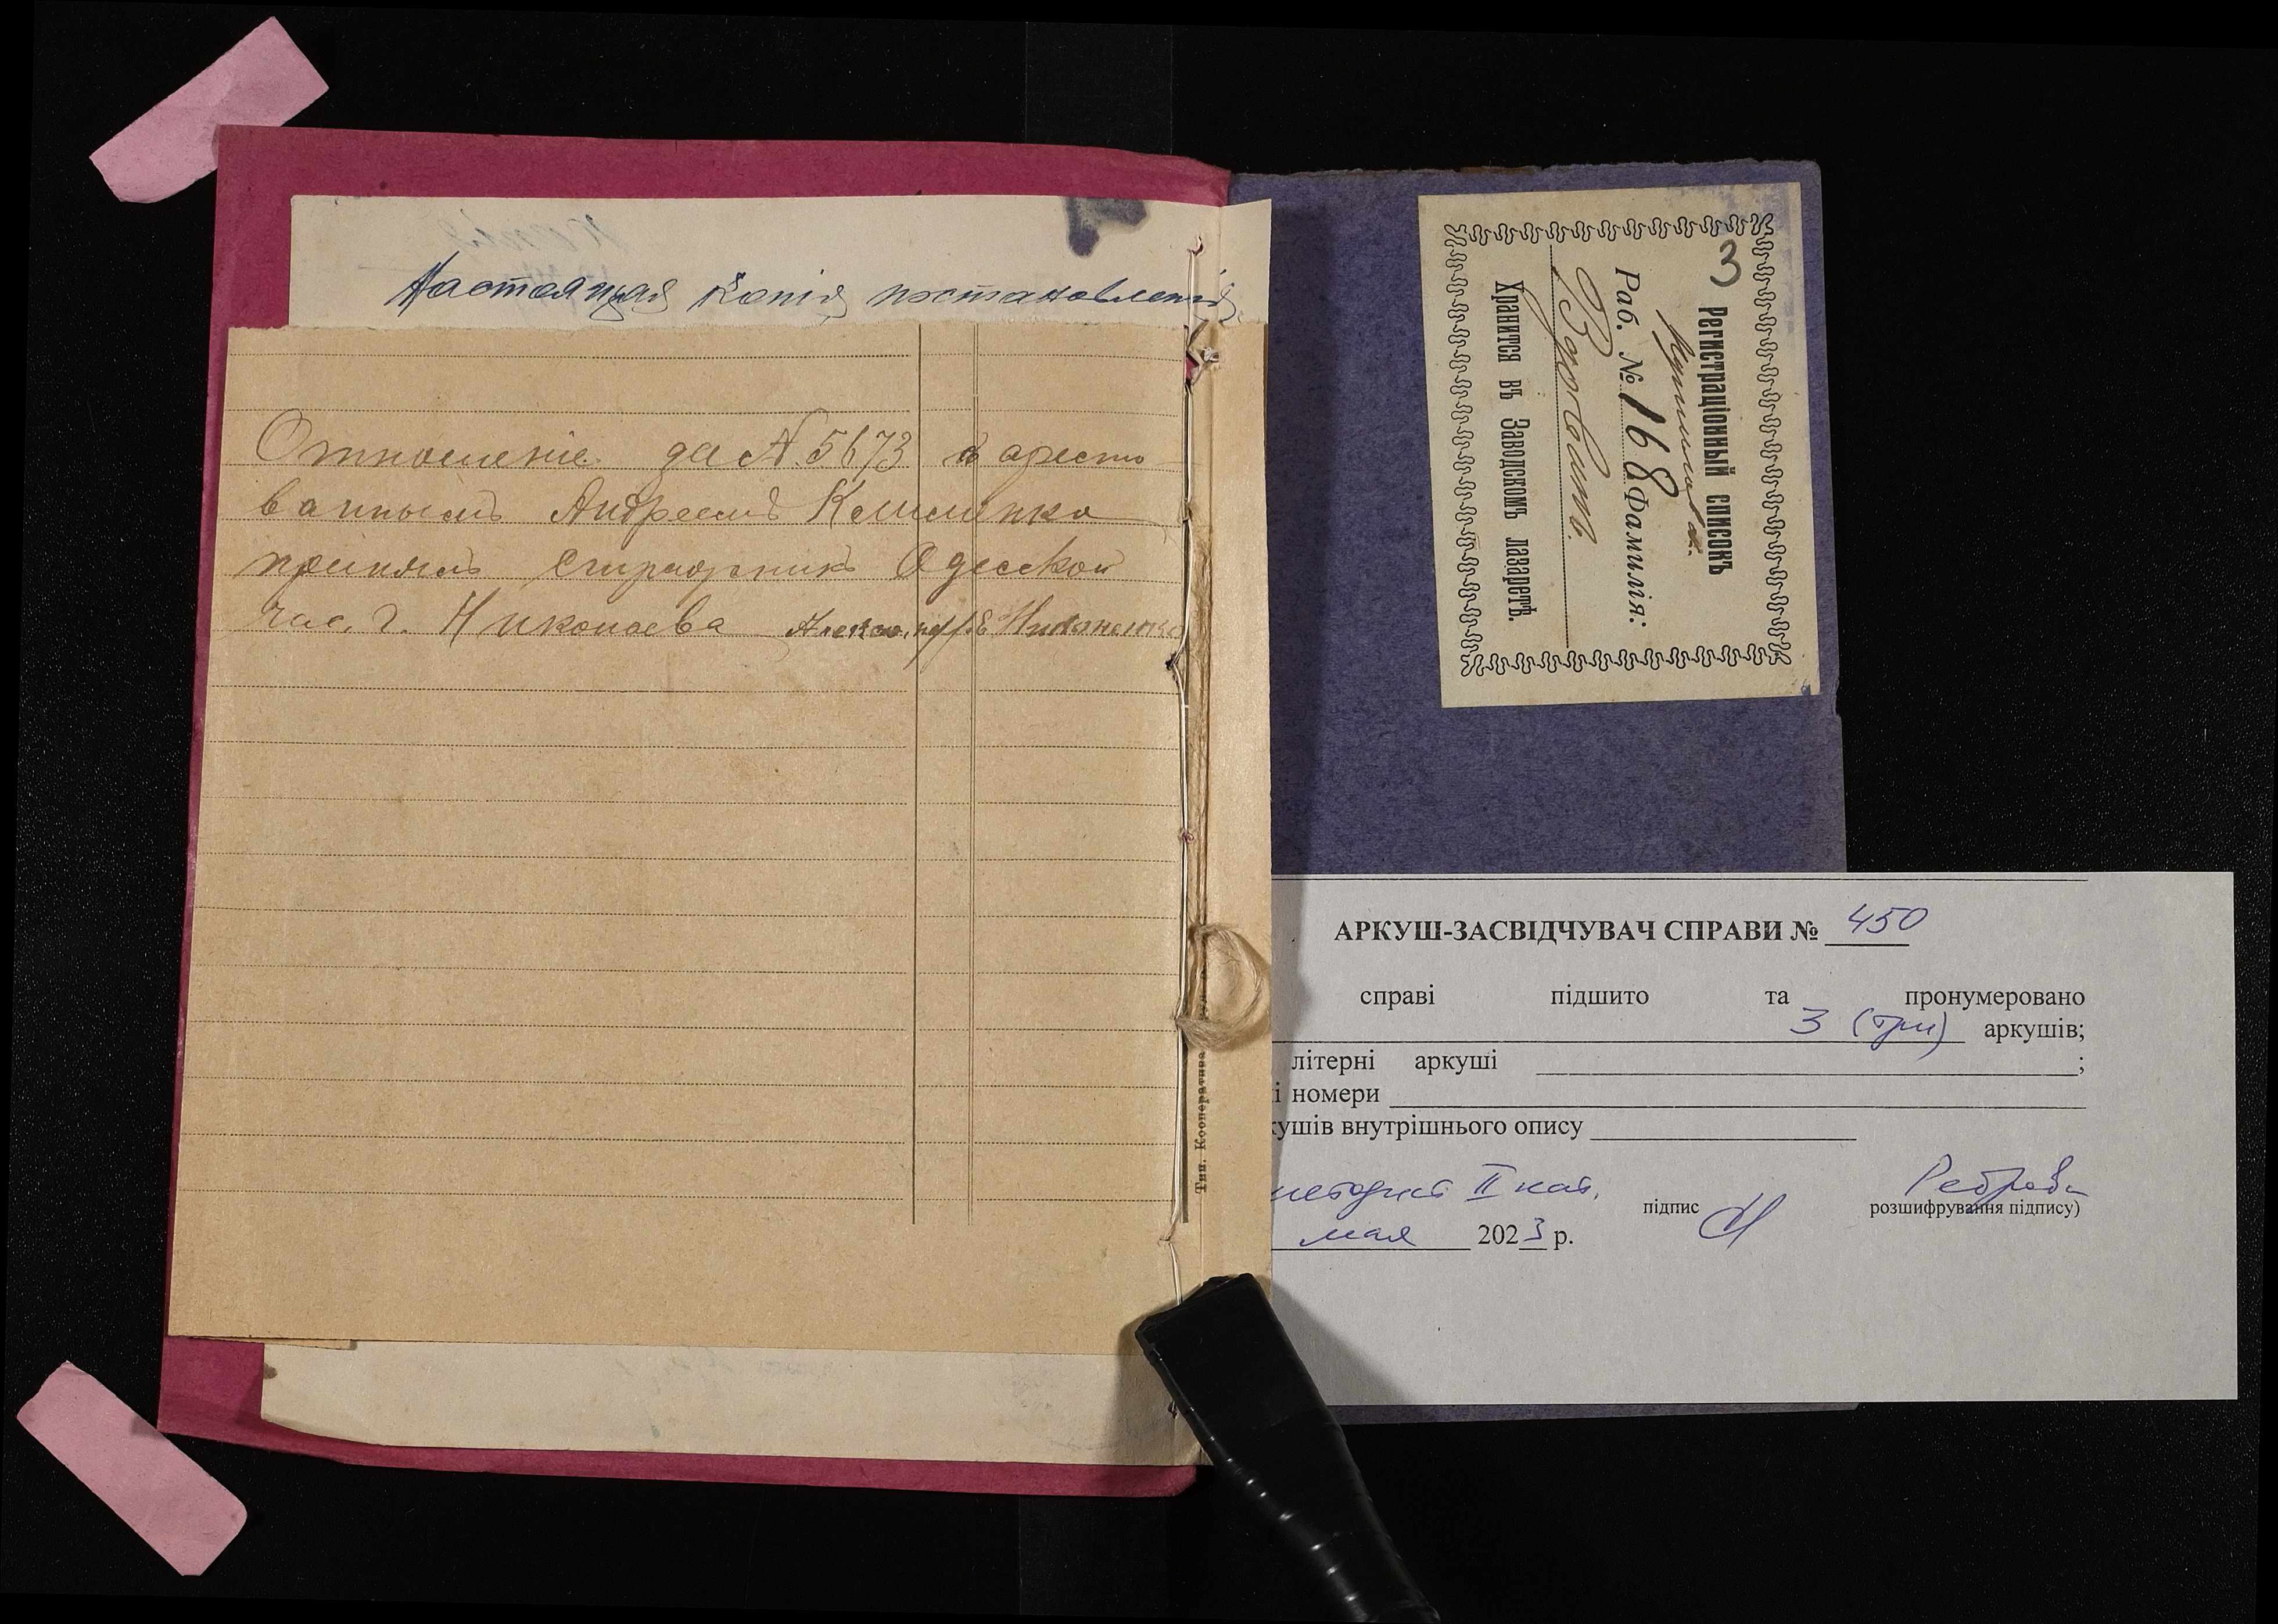 Настоящая копія постановленія
Отношеніе за №. 5673 с аресто
ваннымъ Андреемъ Клименко
принялъ стражникъ Одесской
час. г. Николаева Александръ
3
Регистраціонный списокъ
Раб. № 168 Фамилія:
Вдовватъ.
Хранится въ Заводскомъ лазаретѣ.
Тип. Кооператива
АРКУШ-ЗАСВІДЧУВАЧ СПРАВИ № 450
справі підшито та пронумеровано
3 (три) аркушів;
літерні аркуші ;
і номери
кушів внутрішнього опису
методист II кат.
підпис
розшифрування підпису)
мая 2023 р.